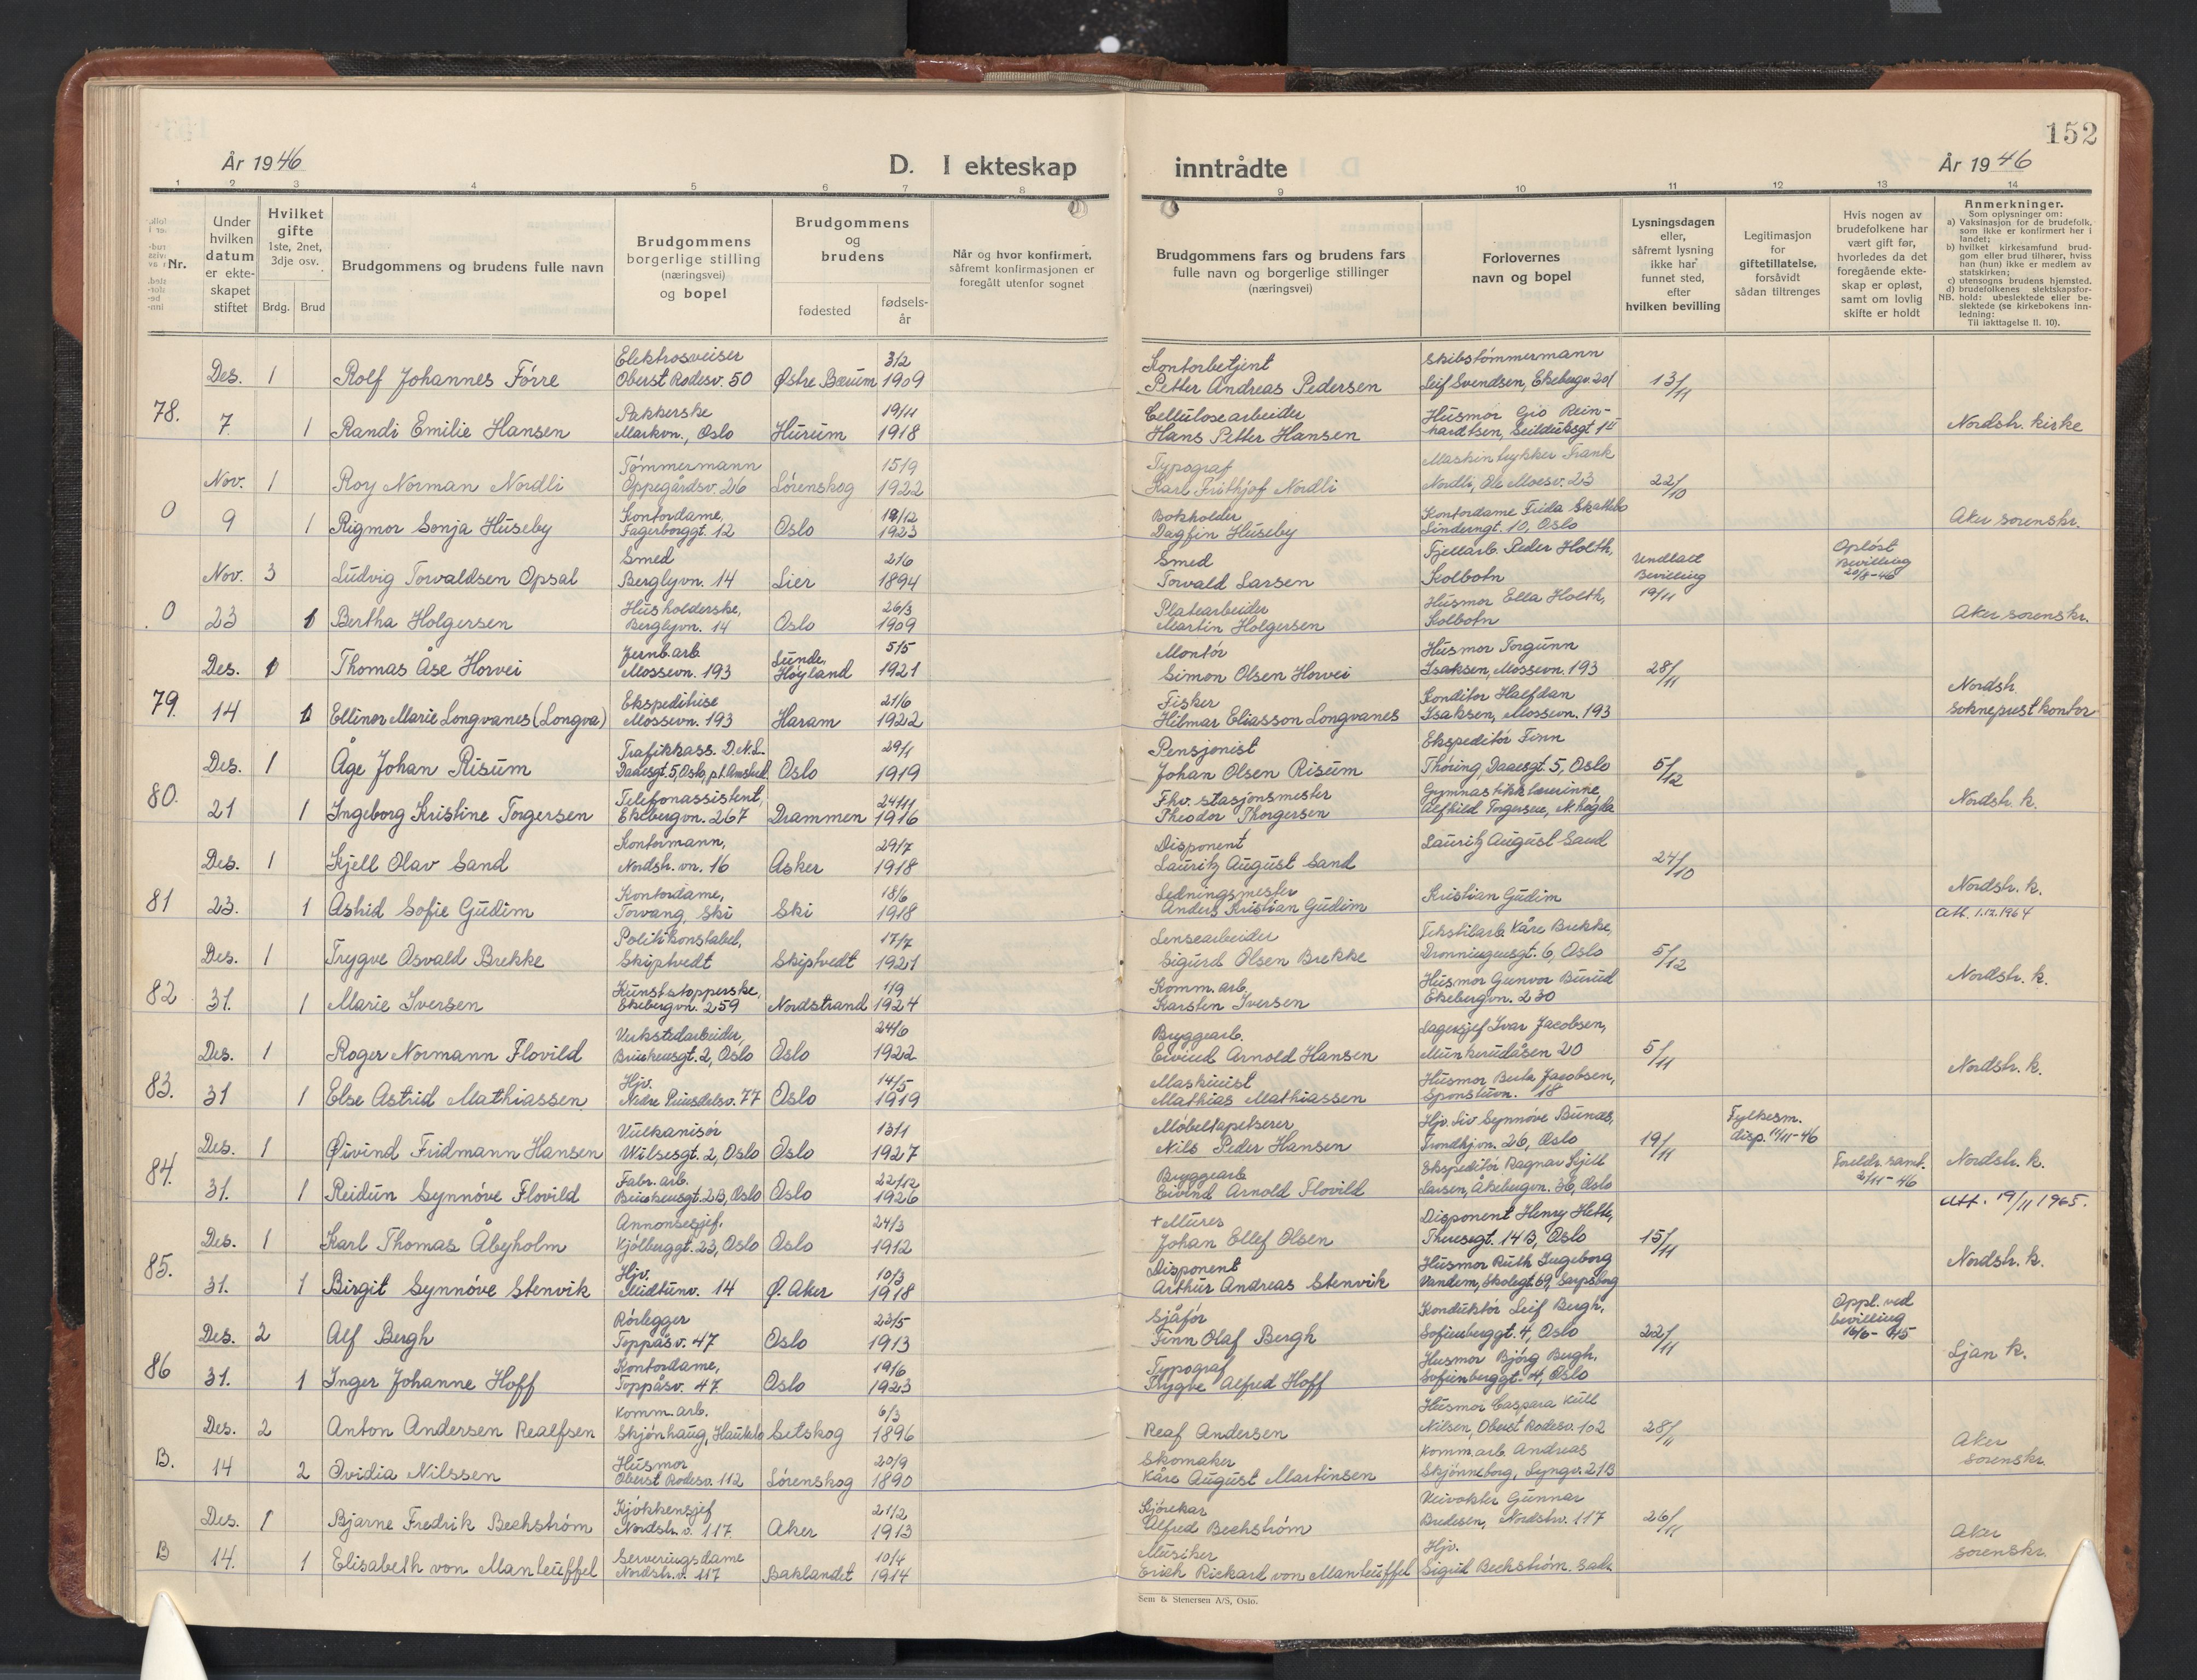 152
År 1946
D. I ekteskap inntrådte
År 1946
1 2 3 4 5 6 7 8 9 10 11 12 13 14
Nr.
Under hvilken datum er ekteskapet stiftet
Hvilket gifte 1ste, 2net, 3dje osv.
Brdg. Brud
Brudgommens og brudens fulle navn
Brudgommens borgerlige stilling (næringsvei) og bopel
Brudgommens og brudens
fødested
fødsels-år
Når og hvor konfirmert, såfremt konfirmasjonen er foregått utenfor sognet
Brudgommens fars og brudens fars fulle navn og borgerlige stillinger (næringsvei)
Forlovernes navn og bopel
Lysningsdagen eller, såfremt lysning ikke har funnet sted, efter hvilken bevilling
Legitimasjon for giftetillatelse, forsåvidt sådan tiltrenges
Hvis nogen av brudefolkene har vært gift før, hvorledes da det foregående ekteskap er opløst, samt om lovlig skifte er holdt
Anmerkninger.
Som oplysninger om:
a) Vaksinasjon for de brudefolk, som ikke er konfirmert her i landet;
b) hvilket kirkesamfund brudgom eller brud tilhører, hviss han (hun) ikke er medlem av statskirken;
c) utensogns brudens hjemsted.
d) brudefolkenes slektskapsforhold: ubeslektede eller beslektede (se kirkebokens innledning:
NB.
Til iakttagelse II. 10).
78.
Des. 1 Rolf Johannes Förre Elektrosveiser Oberst Rodesv. 50 Østre Bærum 3/2 1909 Kontorbetjent Petter Andreas Pedersen Skibstömmermann Leif Svendsen, Ekebergv. 201 13/11
7. 1 Randi Emilie Hansen Pakkerske Markvn., Oslo Hurum 19/11 1918 Cellulosearbeider Hans Petter Hansen Husmor Gio Reinhardtsen, Seilduksgt 14 Nordstr. kirke
0
Nov. 1 Roy Norman Nordli Tömmermann Oppegårdsv. 26 Lörenskog 15/9 1922 Typograf Karl Frithjof Nordli Maskintrykker Frank Nordli, Ole Moesv. 23 22/10
9 1 Rigmor Sonja Huseby Kontordame, Fagerborggt. 12 Oslo 1923 Bokholder Dagfin Huseby Kontordame Frida 10, Oslo Aker sorenskr.
0
Nov. 3 Ludvig Torvaldsen Opsal Smed Berglyvn. 14 Lier 21/6 1894 Smed Torvald Larsen Fjellarb. Peder Holth, Kolbotn Undtatt Bevilling 19/11 Opløst Bevilling 20/8-46
23 1 Bertha Holgersen Husholderske, Berglyvn. 14 Oslo 26/3 1909 Platearbeider Martin Holgersen Husmor Ella Holth, Kolbotn Aker sorenskr.
79.
Des. 1 Thomas Åse Horvei Jernb.arb. Mossevn. 193 Lunde, Höyland 5/5 1921 Montör Simon Olsen Horvei Husmor Torgunn Isaksen, Mossevn. 193 28/11
14 1 Ellinor Marie Longvanes (Longva) Ekspeditrise Mossevn. 193 Haram 21/6 1922 Fisker Hilmar Eliasson Longvanes Konditor Halfdan Isaksen, Mossevn. 193 Nordstr. sokneprestkontor
80.
Des. 1 Åge Johan Risum Trafikkass. D.N.L. Daaesgt. 5, Oslo, Oslo 29/1 1919 Pensjonist Johan Olsen Risum Ekspeditör Finn Thöring, Daaesgt. 5, Oslo 5/12
21 1 Ingeborg Kristine Torgersen Telefonassistent, Ekebergvn. 267 Drammen 24/11 1916 Fhv. stasjonsmester Theodor Thorgersen Gymnastikklærerinne, Alfhild Torgersen, Nordstr. k.
81
Des. 1 Kjell Olav Sand Kontormann, Nordstr. vn. 16 Asker 29/7 1918 Disponent Lauritz August Sand Lauritz August Sand 24/10
23. 1 Astrid Sofie Gudim Kontordame, Torvang, Ski Ski 18/6 1918 Ledningsmester Anders Kristian Gudim Kristian Gudim Nordstr. k. att. 1.12.1964
82
Des. 1 Trygve Osvald Brekke Politikonstabel, Skiptvedt Skiptvedt 17/7 1921 Lensearbeider Sigurd Olsen Brekke Tekstilarb. Kåre Brekke, Dronningensgt. 6, Oslo 5/12
31. 1 Marie Iversen Kunststopperske, Ekebergvn. 259 Nordstrand 1/9 1924 Komm. arb. Karsten Iversen Husmor Gunvor Burud Ekebergvn. 230 Nordstr. k.
83.
Des. 1 Roger Normann Flovild Verkstedarbeider, Brinkensgt. 2, Oslo Oslo 24/6 1922 Bryggearb. Eivind Arnold Hansen Lagersjef Ivar Jacobsen, Munkerudåsen 20 5/11
31 1 Else Astrid Mathiassen Hjv. Nedre Prinsdalsv. 77 Oslo 14/5 1919 Maskinist Mathias Mathiassen Husmor Berta Jacobsen, Sponstuvn. 18 Nordstr. k.
84.
Des. 1 Øivind Fridmann Hansen Vulkanisör Wilsesgt. 2, Oslo Oslo 13/1 1927 Möbeltapetserer Nils Peder Hansen Hjv. Liv Synnöve Bunæs, Trondhj.vn. 26, Oslo 19/11 Fylkesm. disp. 11/11-46
31. 1 Reidun Synnöve Flovild Fabr. arb. Brinkensgt. 2B, Oslo Oslo 22/12 1926 Bryggearb. Eivind Arnold Flovild Ekspeditör Ragnar Kjell Larsen, Åkebergvn. 36, Oslo Foreldr. samt. 2/11-46 Nordstr. k. att. 19/11 1965.
85.
Des. 1 Karl Thomas Åbyholm Annonsesjef, Kjölberggt. 23, Oslo Oslo 24/3 1912 + Murer Johan Ellef Olsen Disponent Henry Hette, Theresegt. 14B, Oslo 15/11
31. 1 Birgit Synnöve Stenvik Hjv. Midtunv. 14 Ø. Aker 10/3 1918 Disponent Arthur Andreas Stenvik Husmor Ruth Ingeborg Vandem, Skolegt. 69, Sarpsborg Nordstr. k.
86
Des. 2 Alf Bergh Rörlegger Toppåsv. 47 Oslo 22/5 1913 Sjåför Finn Olaf Bergh Konduktör Leif Bergh, Sofienberggt. 4, Oslo 22/11 Oppl. ved bevilling 16/6-45
31. 1 Inger Johanne Hoff Kontordame, Toppåsv. 47 Oslo 19/6 1923 Typograf Trygve Alfred Hoff Husmor Björg Bergh, Sofienberggt. 4, Oslo Ljan k.
B.
Des. 2 Anton Andersen Realfsen Komm. arb. Skjönhaug, Hauketo Setskog 6/3 1896 Reaf Andersen Husmor Caspara Kull Nilsen, Oberst Rodesv. 102 28/11
14 2 Ovidia Nilssen Husmor Oberst Rodesv. 112 Lörenskog 20/9 1890 Skomaker Kåre August Martinsen Komm. arb. Andreas Skjönneborg, Lyngv. 21B Aker sorenskr.
B
Des. 1 Bjarne Fredrik Bechström Kjökkensjef Nordstr. v. 117 Aker 21/2 1913 Kjörekar Alfred Bechström Veivokter Gunnar Bredesen, Nordstrv. 117 26/11
14. 1 Elisabeth von Manteuffel Serveringsdame Nordstr. v. 117 Baklandet 10/4 1914 Musiker Erich Rickard von Manteuffel Hjv. Sigrid Bechström. Aker sorenskr.
Sem & Stenersen A/S, Oslo.